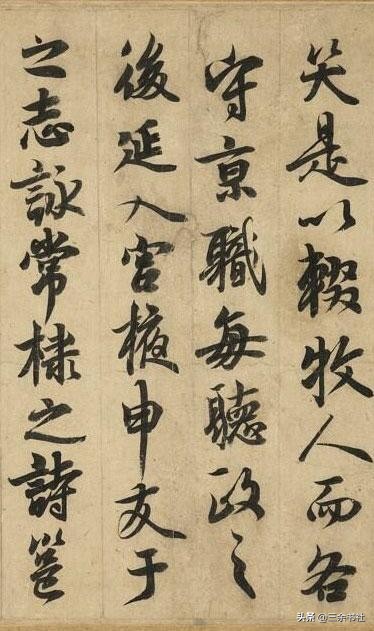 笑是以輟牧人而各
守京職每聽政之
後延入宫掖申友于
之志詠常棣之詩邕
头条@三余书社